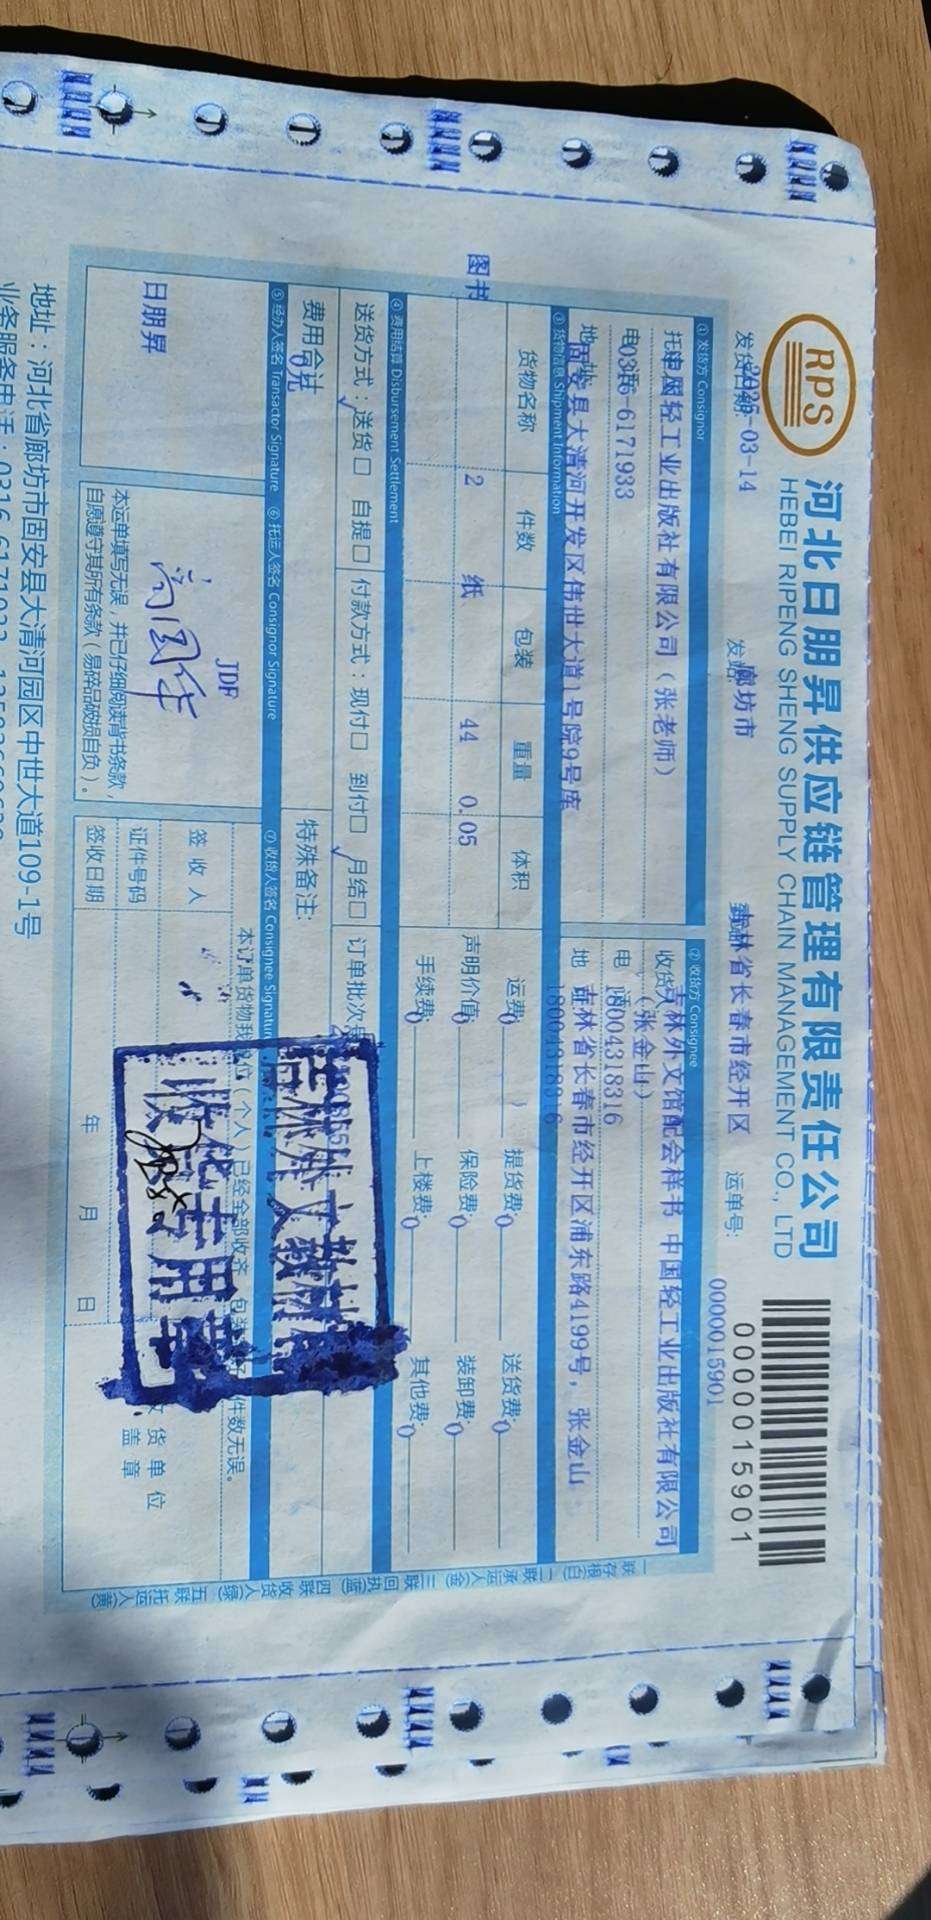 RPS
河北日朋昇供应链管理有限责任公司
HEBEI RIPENG SHENG SUPPLY CHAIN MANAGEMENT CO., LTD
0000015901
发货日期 2025-03-14
发站: 廊坊市
吉林省长春市经开区
运单号: 0000015901
① 发货方 Consignor
② 收货方 Consignee
中国轻工业出版社有限公司（张老师）
收货 吉林外文馆配会样书 中国轻工业出版社有限公司
（张金山）
电 0316-6171933
电 18004318316
地 固安县大清河开发区伟世大道1号院9号库
地 吉林省长春市经开区浦东路4199号，张金山
18004318316
③ 货物信息 Shipment Information
货物名称 件数 包装 重量 体积
图书 2 纸 44 0.05
运费: 0 提货费: 0 送货费: 0
声明价值: 0 保险费: 0 装卸费: 0
手续费: 0 上楼费: 0 其他费: 0
④ 费用结算 Disbursement Settlement
送货方式：送货□ 自提□ 付款方式：现付□ 到付□ 月结□ 订单批次
费用合计 0元
特殊备注:
⑤ 经办人签名 Transactor Signature
⑥ 托运人签名 Consignor Signature
⑦ 收货人签名 Consignee Signature
日朋昇
JDF
本运单填写无误，并已仔细阅读背书条款，
自愿遵守其所有条款（易碎品破损自负）。
本订单货物我单位（个人）已经全部收齐，包装 件数无误。
签 收 人
证件号码
签收日期 年 月 日
收货专用章
货 单 位
盖 章
一联存根(白) 二联承运人(金) 三联回执(蓝) 四联收货人(绿) 五联托运人(黄)
地址：河北省廊坊市固安县大清河园区中世大道109-1号